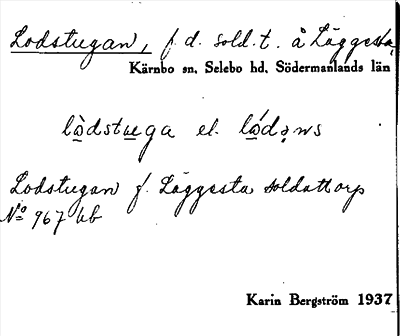 Lodstugan, f. d. sold. t. å Läggesta,
Kärnbo sn, Selebo hd, Södermanlands län
lòdstuga el. lódəns
Lodstugan f. Läggesta soldattorp
No 967 Ub
Karin Bergström 1937